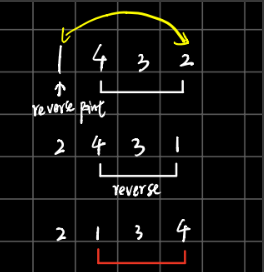 1 4 3 2
reverse point
2 4 3 1
reverse
2 1 3 4